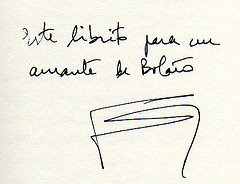 este librito para un
amante de Bolaño